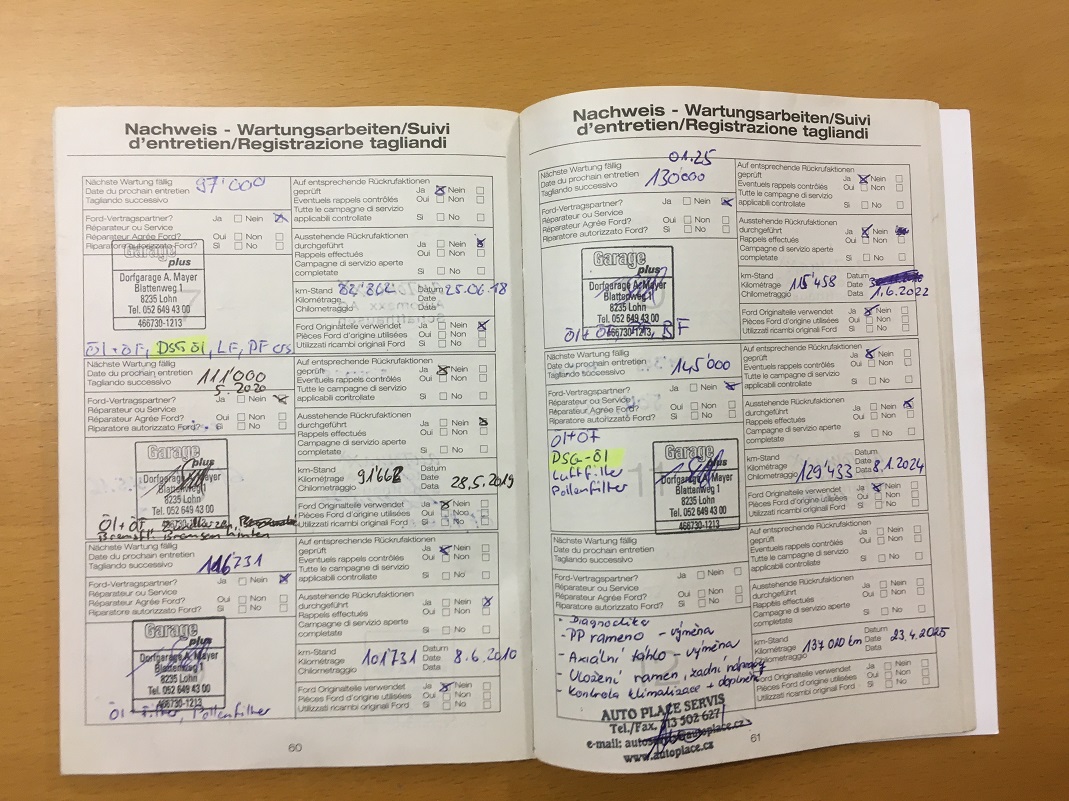 Nachweis - Wartungsarbeiten/Suivi
d'entretien/Registrazione tagliandi
Nächste Wartung fällig
Date du prochain entretien
Tagliando successivo
97'000
Ford-Vertragspartner? Ja Nein
Réparateur ou Service
Réparateur Agrée Ford? Oui Non
Riparatore autorizzato Ford? Si No
Garage
plus
Dorfgarage A. Mayer
Blattenweg 1
8235 Lohn
Tel. 052 649 43 00
466730-1213
Öl + ÖF, DSG Öl, LF, PF
Auf entsprechende Rückrufaktionen
geprüft Ja Nein
Eventuels rappels contrôlés Oui Non
Tutte le campagne di servizio
applicabili controllate Si No
Ausstehende Rückrufaktionen
durchgeführt Ja Nein
Rappels effectués Oui Non
Campagne di servizio aperte
completate Si No
km-Stand 82'862 Datum 25.06.18
Kilométrage Date
Chilometraggio Data
Ford Originalteile verwendet Ja Nein
Pièces Ford d'origine utilisées Oui Non
Utilizzati ricambi originali Ford Si No
Nächste Wartung fällig
Date du prochain entretien
Tagliando successivo
111'000
5.2020
Ford-Vertragspartner? Ja Nein
Réparateur ou Service
Réparateur Agrée Ford? Oui Non
Riparatore autorizzato Ford? Si No
Garage
plus
Dorfgarage A. Mayer
Blattenweg 1
8235 Lohn
Tel. 052 649 43 00
466730-1213
Öl + ÖF
Bremsfl. Bremsen hinten
Auf entsprechende Rückrufaktionen
geprüft Ja Nein
Eventuels rappels contrôlés Oui Non
Tutte le campagne di servizio
applicabili controllate Si No
Ausstehende Rückrufaktionen
durchgeführt Ja Nein
Rappels effectués Oui Non
Campagne di servizio aperte
completate Si No
km-Stand 91'662 Datum 28.5.2019
Kilométrage Date
Chilometraggio Data
Ford Originalteile verwendet Ja Nein
Pièces Ford d'origine utilisées Oui Non
Utilizzati ricambi originali Ford Si No
Nächste Wartung fällig
Date du prochain entretien
Tagliando successivo
116'731
Ford-Vertragspartner? Ja Nein
Réparateur ou Service
Réparateur Agrée Ford? Oui Non
Riparatore autorizzato Ford? Si No
Garage
plus
Dorfgarage A. Mayer
Blattenweg 1
8235 Lohn
Tel. 052 649 43 00
466730-1213
Öl + Filter, Pollenfilter
Auf entsprechende Rückrufaktionen
geprüft Ja Nein
Eventuels rappels contrôlés Oui Non
Tutte le campagne di servizio
applicabili controllate Si No
Ausstehende Rückrufaktionen
durchgeführt Ja Nein
Rappels effectués Oui Non
Campagne di servizio aperte
completate Si No
km-Stand Datum
Kilométrage 101'731 Date 8.6.2010
Chilometraggio Data
Ford Originalteile verwendet Ja Nein
Pièces Ford d'origine utilisées Oui Non
Utilizzati ricambi originali Ford Si No
60
Nachweis - Wartungsarbeiten/Suivi
d'entretien/Registrazione tagliandi
01.25
Nächste Wartung fällig
Date du prochain entretien
Tagliando successivo
130'000
Ford-Vertragspartner? Ja Nein
Réparateur ou Service
Réparateur Agrée Ford? Oui Non
Riparatore autorizzato Ford? Si No
Garage
plus
Dorfgarage A. Mayer
Blattenweg 1
8235 Lohn
Tel. 052 649 43 00
466730-1213
Öl + BF
Auf entsprechende Rückrufaktionen
geprüft Ja Nein
Eventuels rappels contrôlés Oui Non
Tutte le campagne di servizio
applicabili controllate Si No
Ausstehende Rückrufaktionen
durchgeführt Ja Nein
Rappels effectués Oui Non
Campagne di servizio aperte
completate Si No
km-Stand Datum
Kilométrage 115'458 Date
Chilometraggio Data 1.6.2022
Ford Originalteile verwendet Ja Nein
Pièces Ford d'origine utilisées Oui Non
Utilizzati ricambi originali Ford Si No
Nächste Wartung fällig
Date du prochain entretien
Tagliando successivo
145'000
Ford-Vertragspartner? Ja Nein
Réparateur ou Service
Réparateur Agrée Ford? Oui Non
Riparatore autorizzato Ford? Si No
Öl+ÖF
DSG-Öl
Luftfilter
Pollenfilter
Garage
plus
Dorfgarage A. Mayer
Blattenweg 1
8235 Lohn
Tel. 052 649 43 00
466730-1213
Auf entsprechende Rückrufaktionen
geprüft Ja Nein
Eventuels rappels contrôlés Oui Non
Tutte le campagne di servizio
applicabili controllate Si No
Ausstehende Rückrufaktionen
durchgeführt Ja Nein
Rappels effectués Oui Non
Campagne di servizio aperte
completate Si No
km-Stand Datum
Kilométrage 129'433 Date 8.1.2024
Chilometraggio Data
Ford Originalteile verwendet Ja Nein
Pièces Ford d'origine utilisées Oui Non
Utilizzati ricambi originali Ford Si No
Nächste Wartung fällig
Date du prochain entretien
Tagliando successivo
Ford-Vertragspartner? Ja Nein
Réparateur ou Service
Réparateur Agrée Ford? Oui Non
Riparatore autorizzato Ford? Si No
- Diagnostika
- PP rameno - výměna
- Axiální táhlo - výměna
- Uložení ramen, zadní nápravy
- Kontrola klimatizace + doplnění
AUTO PLACE SERVIS
Tel./Fax. 313 502 627
e-mail: autoservis@autoplace.cz
www.autoplace.cz
Auf entsprechende Rückrufaktionen
geprüft Ja Nein
Eventuels rappels contrôlés Oui Non
Tutte le campagne di servizio
applicabili controllate Si No
Ausstehende Rückrufaktionen
durchgeführt Ja Nein
Rappels effectués Oui Non
Campagne di servizio aperte
completate Si No
km-Stand Datum
Kilométrage 137 020 km Date 23.4.2025
Chilometraggio Data
Ford Originalteile verwendet Ja Nein
Pièces Ford d'origine utilisées Oui Non
Utilizzati ricambi originali Ford Si No
61